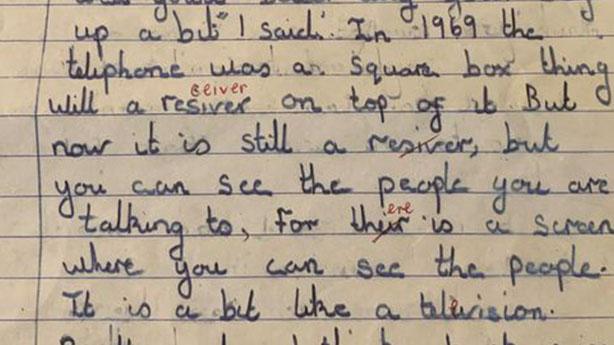 up a bit" I said. In 1969 the
teliphone was a square box thing
ceiver
will a resiver on top of it But
now it is still a resiver, but
you can see the people you are
ere
talking to, for their is a screen
where you can see the people.
It is a bit like a telivision.